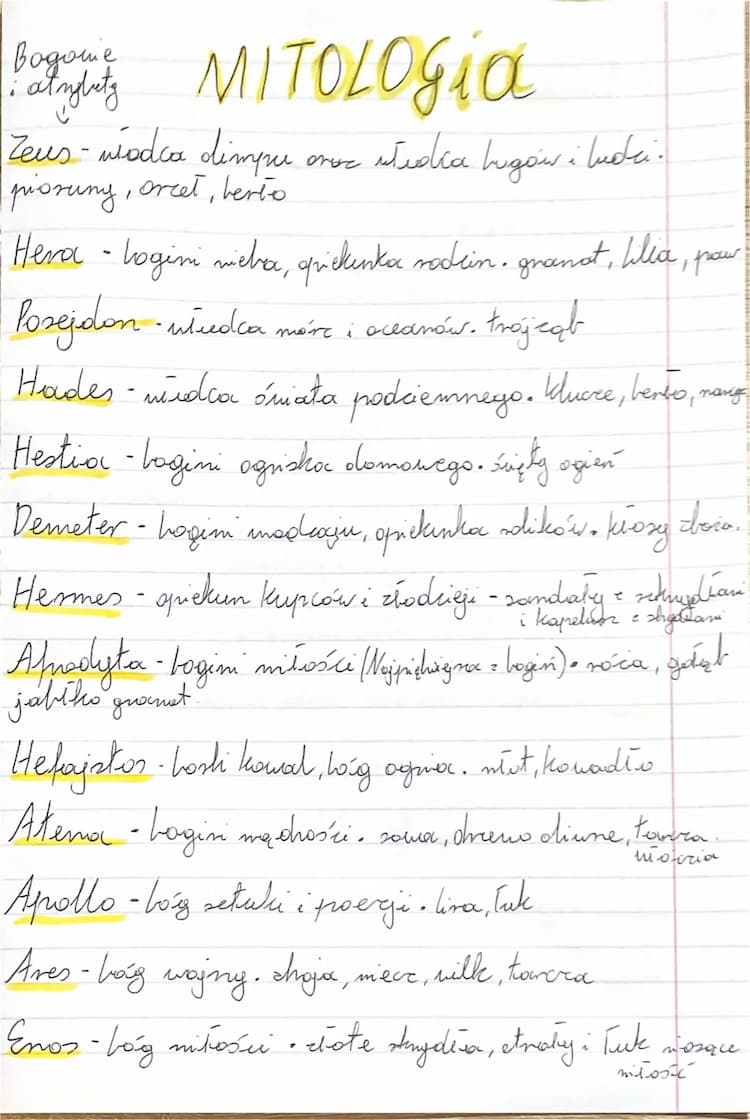 Bogowie
i atrybuty
MITOLOGIA
Zeus - władca olimpu oraz władca bogów i ludzi.
pioruny, orzeł, berło
Hera - bogini nieba, opiekunka rodzin. granat, lilia, paw
Posejdon - władca mórz i oceanów. trójząb
Hades - władca świata podziemnego. klucze, berło,
Hestia - bogini ogniska domowego. święty ogień
Demeter - bogini urodzaju, opiekunka rolników. kłosy zboża.
Hermes - opiekun kupców i złodzieji - sandały z skrzydłami
i kapelusz z skrzydłami
Afrodyta - bogini miłości (Najpiękniejsza z bogiń). róża, gołąb
jabłko granat
Hefajstos - boski kowal, bóg ognia. młot, kowadło
Atena - bogini mądrości. sowa, drzewo oliwne, tarcza
włócznia
Apollo - bóg sztuki i poezji. lira, łuk
Ares - bóg wojny. zbroja, miecz, wilk, tarcza
Eros - bóg miłości. złote skrzydła, strzały i łuk niosące
miłość